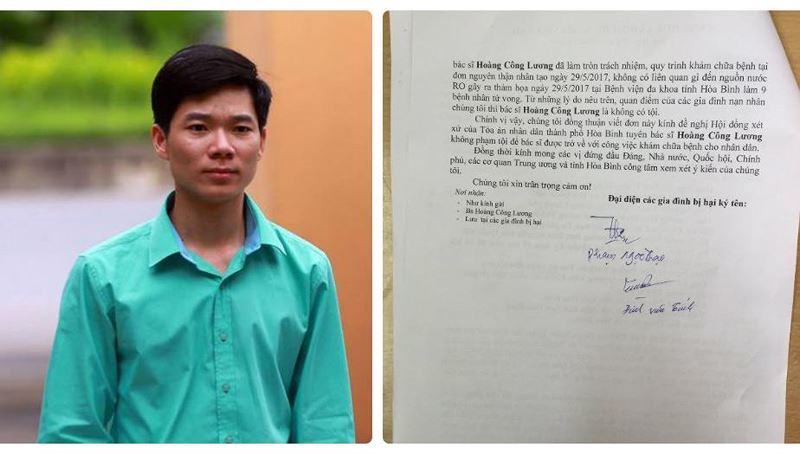 bác sĩ Hoàng Công Lương đã làm tròn trách nhiệm, quy trình khám chữa bệnh tại
đơn nguyên thận nhân tạo ngày 29/5/2017, không có liên quan gì đến nguồn nước
RO gây ra thảm họa ngày 29/5/2017 tại Bệnh viện đa khoa tỉnh Hòa Bình làm 9
bệnh nhân tử vong. Từ những lý do nêu trên, quan điểm của các gia đình nạn nhân
chúng tôi thì bác sĩ Hoàng Công Lương là không có tội.
Chính vì vậy, chúng tôi đồng thuận viết đơn này kính đề nghị Hội đồng xét
xử của Tòa án nhân dân thành phố Hòa Bình tuyên bác sĩ Hoàng Công Lương
không phạm tội để bác sĩ được trở về với công việc khám chữa bệnh cho nhân dân.
Đồng thời kính mong các vị đứng đầu Đảng, Nhà nước, Quốc hội, Chính
phủ, các cơ quan Trung ương và tỉnh Hòa Bình công tâm xem xét ý kiến của chúng
tôi.
Chúng tôi xin trân trọng cảm ơn!
Nơi nhận:
- Như kính gửi
- Bs Hoàng Công Lương
- Lưu tại các gia đình bị hại
Đại diện các gia đình bị hại ký tên:
Phạm Ngọc Thạo
Đinh văn